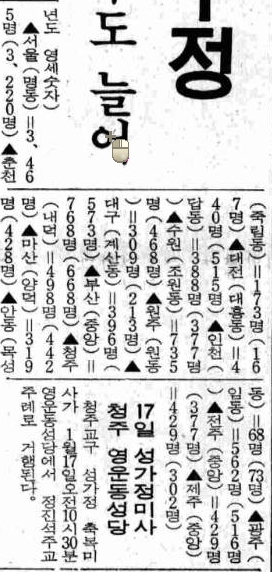 정
도 늘어
년도 영세숫자)
▲서울(명동)=3,46
5명(3,220명)▲춘천
(죽림동)=173명(16
7명)▲대전(대흥동)=4
40명(515명)▲인천(
답동)=388명(377명
)▲수원(조원동)=735
명(468명)▲원주(원동
)=309명(213명)▲
대구(계산동)=396명(
573명)▲부산(중앙)=
768명(668명)▲청주
(내덕)=498명(442
명)▲마산(양덕)=319
명(428명)▲안동(목성
동)=68명(73명)▲광주(
일동)=562명(516명
)▲전주(중앙)=429명
(377명)▲제주(중앙)
=429명(302명)
17일 성가정미사
청주 영운동성당
청주교구 성가정 축복미
사가 1월17일오전10시30분
영운동성당에서 정진석주교
주례로 거행된다.